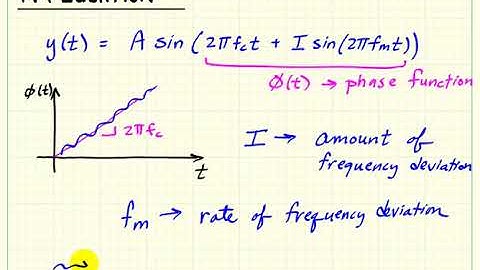 FM Equation
y(t) = A sin(2πf_ct + I sin(2πf_mt))
φ(t) → phase function
φ(t)
2πf_c
t
I → amount of
frequency deviation
f_m → rate of frequency deviation